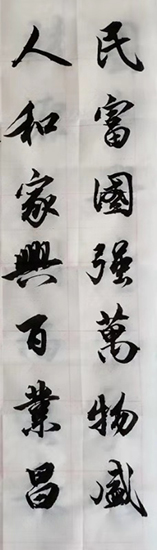 民富國强萬物盛
人和家興百業昌